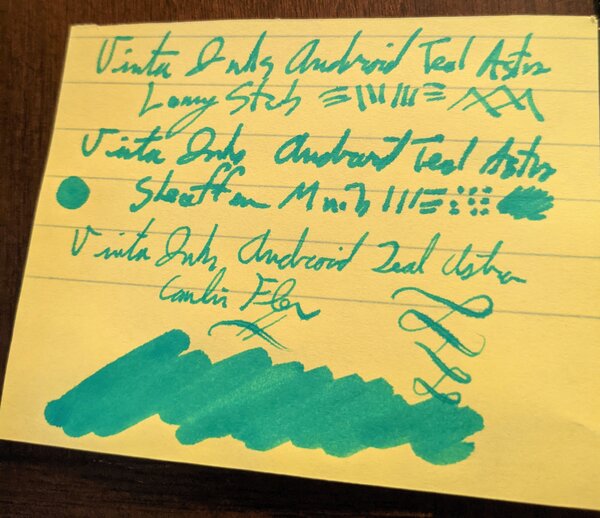 Vinta Inks Android Teal Astra
Lamy Stub
Vinta Inks Android Teal Astra
Sheaffer
Vinta Inks Android Teal Astra
Flex